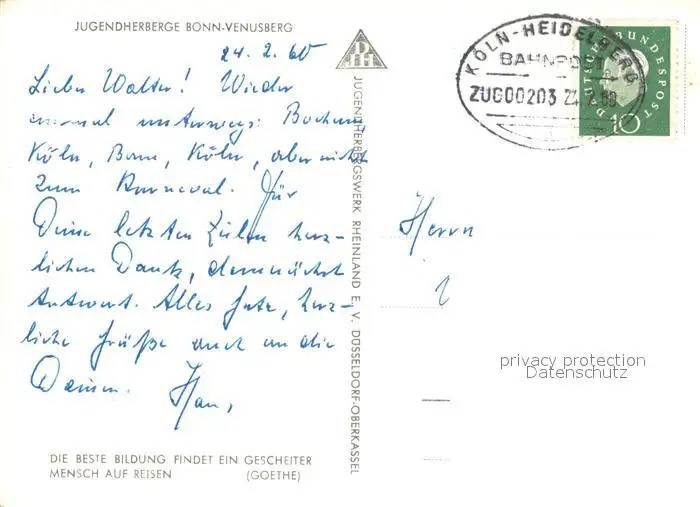 JUGENDHERBERGE BONN-VENUSBERG
24. 2. 60
Lieber Walter! Wieder
einmal unterwegs: Bochum,
Köln, Bonn, Köln, aber nicht
zum Karneval. Für
Deine letzten Zeilen herz-
lichen Dank, demnächst
Antwort. Alles Gute, herz-
liche Grüße auch an die
Damen.
DIE BESTE BILDUNG FINDET EIN GESCHEITER
MENSCH AUF REISEN (GOETHE)
DJH
JUGENDHERBERGSWERK RHEINLAND E. V. DÜSSELDORF-OBERKASSEL
KÖLN-HEIDELBERG
BAHNPOST
ZUG00203 24.2.60
DEUTSCHE BUNDESPOST
10
Herrn
privacy protection
Datenschutz